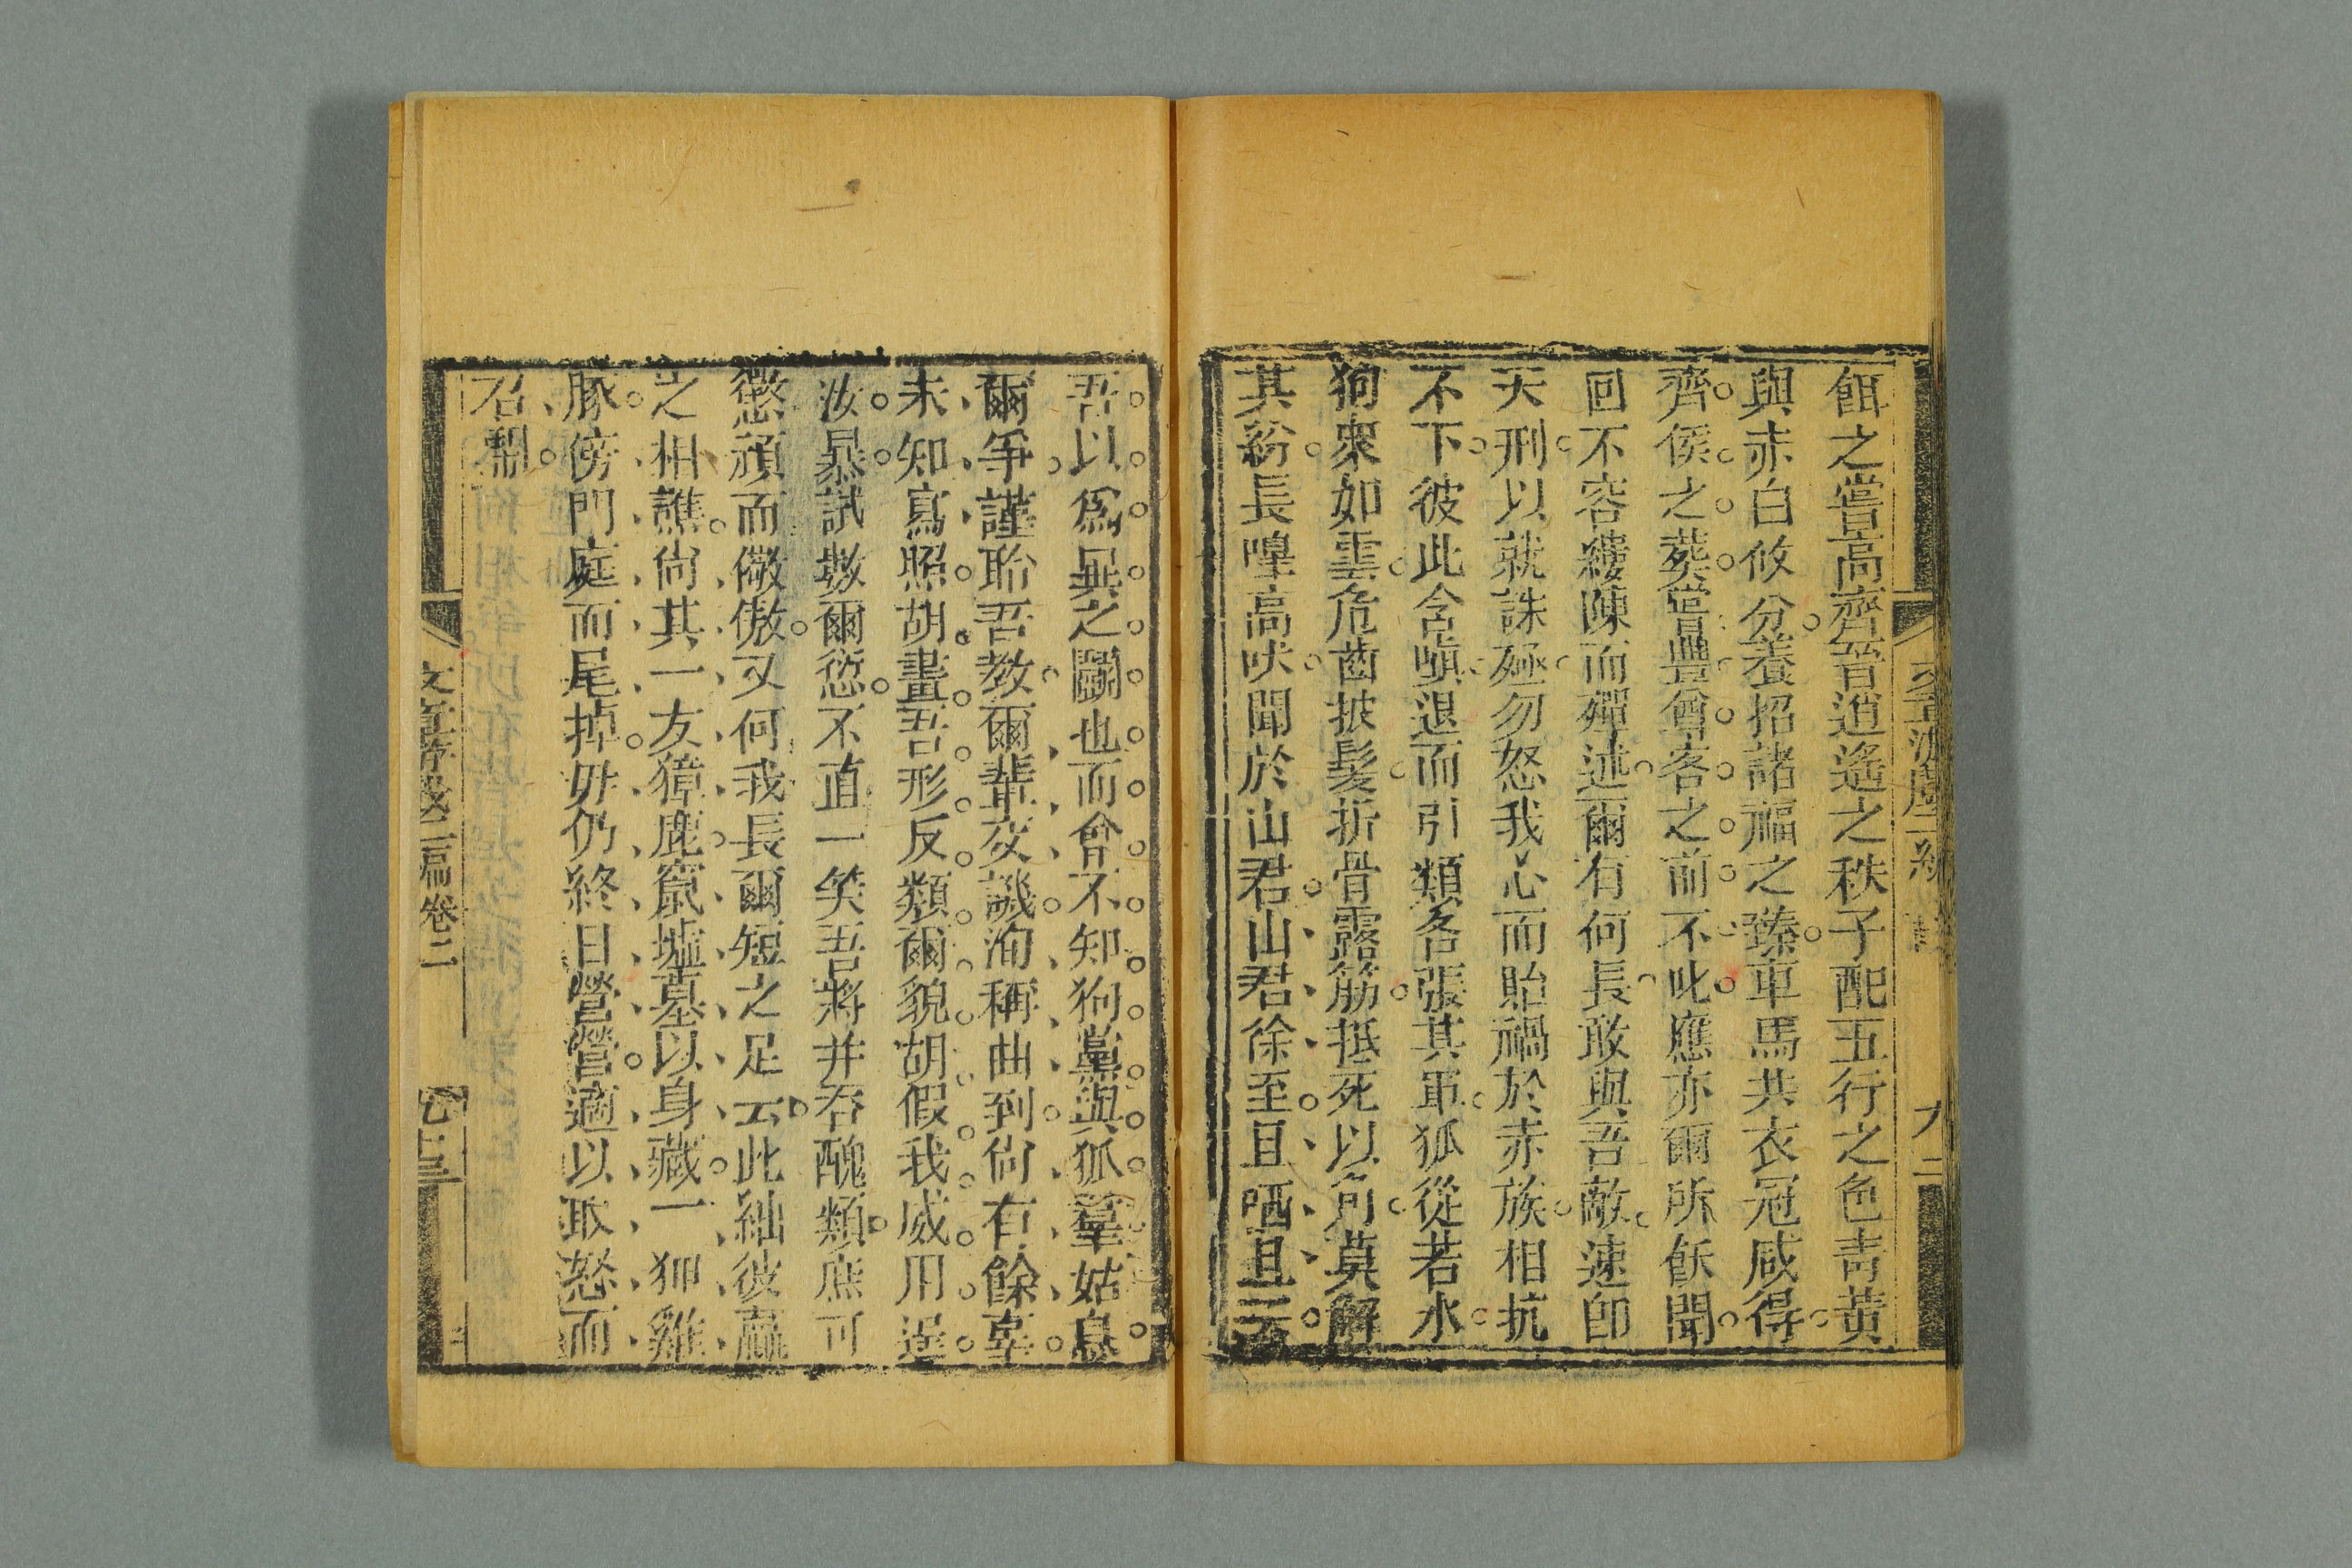 餌之嘗高齊晉逍遙之秩子配五行之色靑黃
與赤白攸分養招諸福之臻車馬共衣冠咸得
齊侯之葬嘗豐會客之前不此應亦爾所飫聞
回不容縷陳而殫述爾有何長敢與吾敵速卽
天刑以就誅殛勿怒我心而貽禍於赤族相抗
不下彼此含嗔退而引類各張其軍狐從若水
狗衆如雲危齒披髮折骨露筋抵死以角莫解
其紛長嘷高吠聞於山君山君徐至且哂且云
吾以爲異之鬭也而會不知狗黨與狐羣姑息
爾爭謹聆吾教爾輩交譏洵稱曲到尙有餘辜
未知寫照胡畫吾形反類爾貌胡假我威用逞
汝暴試數爾愆不直一笑吾將并吞醜類庶可
懲頑而儆傲又何我長爾短之足云此絀彼贏
之相譙尙其一友獐鹿竄墟墓以身藏一狎雞
豚傍門庭而尾掉毋仍終日營營適以取怒而
召鬭
文章游戲二編卷二